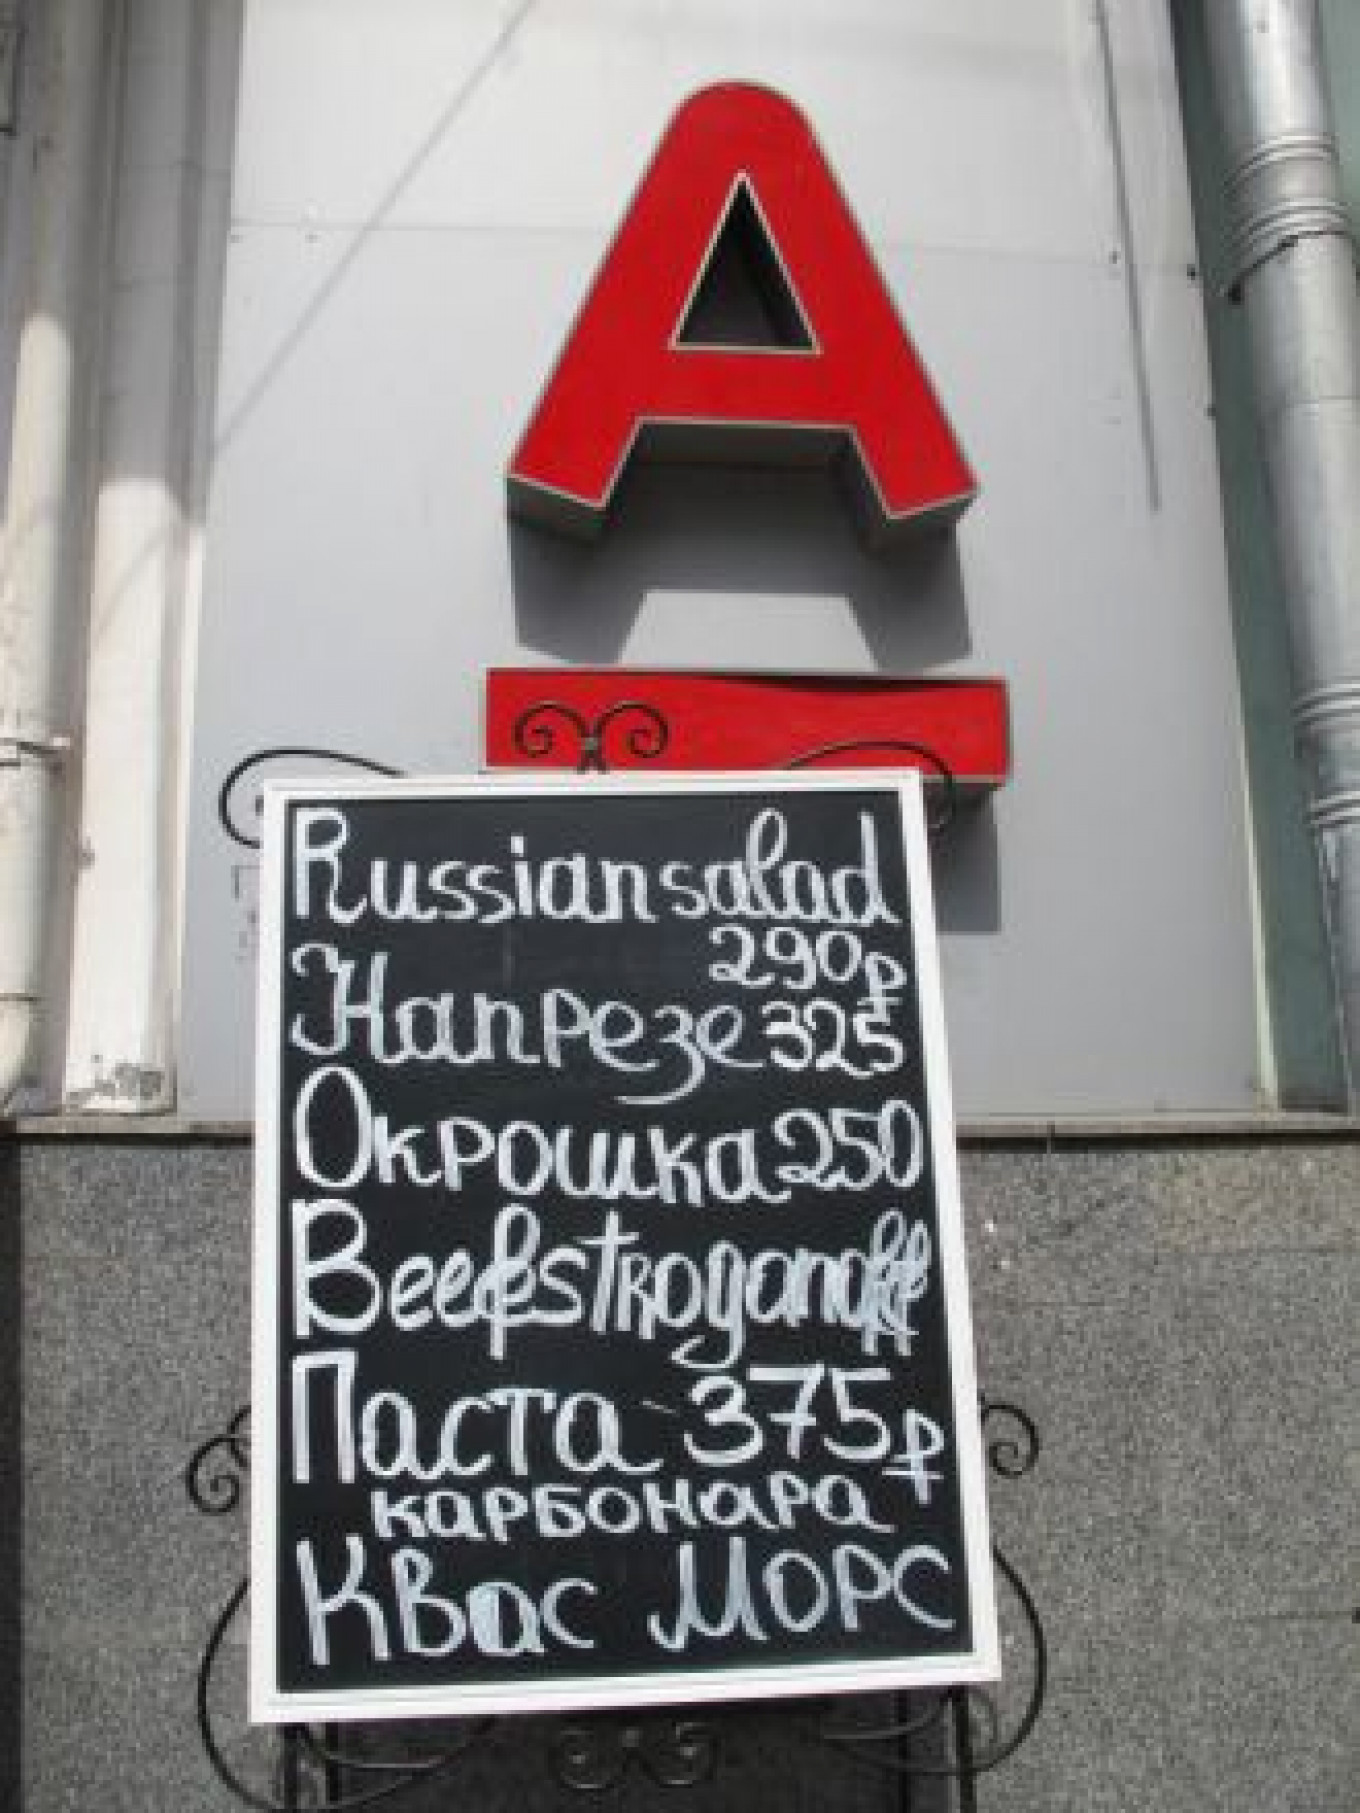 А
Russian salad
290₽
Капрезе 325
Окрошка 250
Beefstroganoff
Паста 375₽
карбонара
Квас Морс